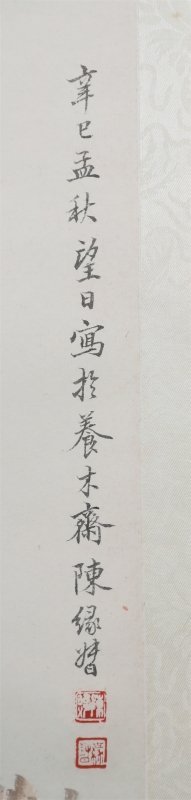 辛巳孟秋望日寫於養木齋陳緣督